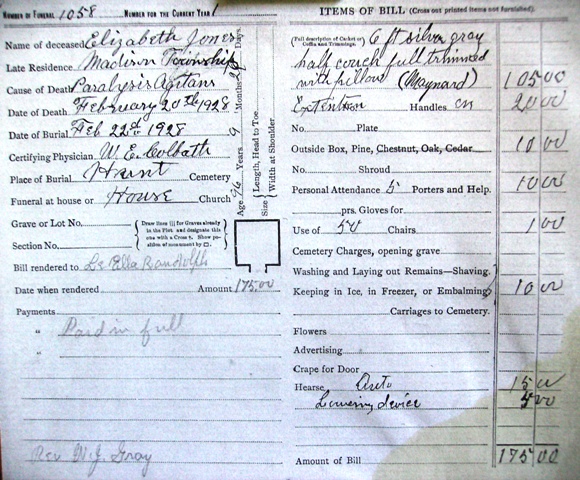 NUMBER OF FUNERAL 1058 NUMBER FOR THE CURRENT YEAR 1
Name of deceased Elizabeth Jones
Late Residence Madison Township
Cause of Death Paralysis Agitans
Date of Death February 20th 1928
Date of Burial Feb 22nd 1928
Certifying Physician W. E. Colbath
Place of Burial Hunt Cemetery
Funeral at house or House Church
Grave or Lot No.
Section No.
Draw lines ||| for Graves already in the Plot, and designate this one with a Cross †. Show position of monument by □.
Age 96 Years 9 Months Days
Size Length, Head to Toe
Width at Shoulder
Bill rendered to Le Ella Randolph
Date when rendered Amount 175.00
Payments
" Paid in full
"
Rev W. J. Gray
ITEMS OF BILL (Cross out printed items not furnished).
(Full description of Casket or Coffin and Trimmings.) 6 ft silver gray
half couch full trimmed
with pillow (Maynard) 105 00
Extention Handles on 20 00
No. Plate
Outside Box, Pine, Chestnut, Oak, Cedar 10 00
No. Shroud
Personal Attendance 5 Porters and Help. 10 00
prs. Gloves for
Use of 50 Chairs 1 00
Cemetery Charges, opening grave
Washing and Laying out Remains—Shaving.
Keeping in Ice, in Freezer, or Embalming 10 00
Carriages to Cemetery.
Flowers
Advertising
Crape for Door
Hearse Auto 15 00
Lowering device 5 00
Amount of Bill 175 00